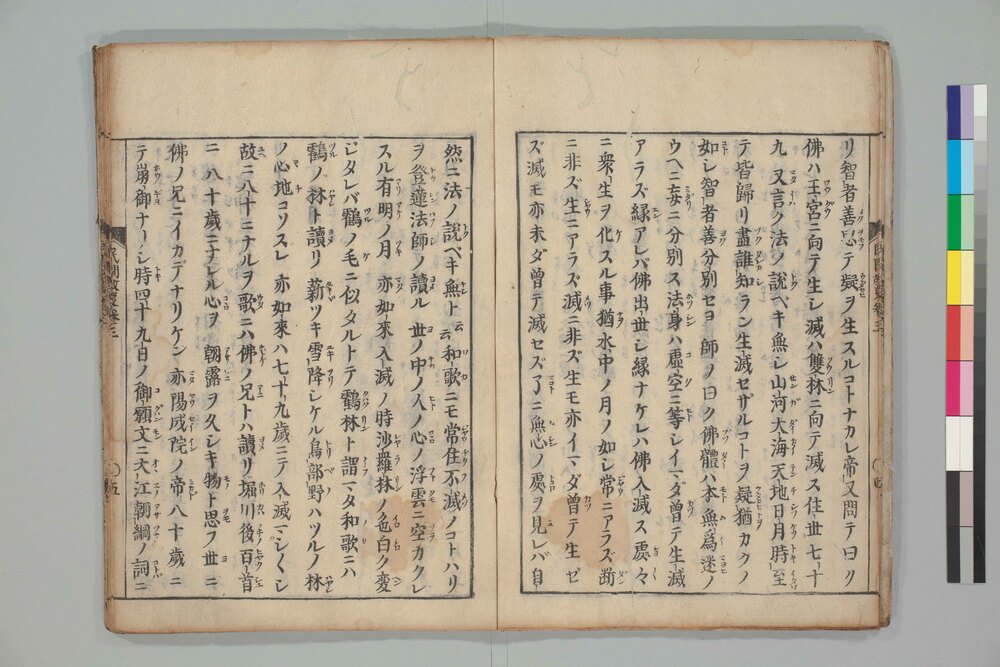 リ智者善ク思テ疑ヲ生スルコトナカレ帝又問テ曰ク
佛ハ王宮ニ向テ生シ滅ハ雙林ニ向テ滅ス住世七十
九又言ク法ノ説ベキ無シ山河大海天地日月時至
テ皆歸リ盡誰知ラン生滅セザルコトヲ疑猶カクノ
如シ智者善分別セヨ師ノ曰ク佛體ハ本無爲迷ノ
ウヘニ妄ニ分別ス法身ハ虚空ニ等シイマダ曾テ生滅
アラズ縁アレバ佛出世シ縁ナケレハ佛入滅ス處々
ニ衆生ヲ化スル事猶水中ノ月ノ如シ常ニアラズ断
ニ非ズ生ニアラズ滅ニ非ズ生モ亦イマダ曾テ生ゼ
ズ滅モ亦未ダ曾テ滅セズ了ニ無心ノ處ヲ見レバ自
然ニ法ノ説ベキ無ト云云和歌ニモ常住不滅ノコトハリ
ヲ登蓮法師ノ讀ル世ノ中ノ人ノ心ノ浮雲ニ空カクレ
スル有明ノ月亦如來入滅ノ時沙羅林ノ色白ク変
ジタレバ鶴ノ毛ニ似タルトテ鶴林ト謂マタ和歌ニハ
鶴ノ林ト讀リ薪ツキ雪降シケル鳥部野ハツルノ林
ノ心地コソスレ亦如來ハ七十九歳ニテ入滅マシ〱シ
故ニ八十ニナルヲ歌ニハ佛ノ兄トハ讀リ堀川後百首
ニ八十歳ニナレル心ヲ朝露ヲ久シキ物ト思フ世ニ
佛ノ兄ニイカデナリケン亦陽成院ノ帝八十歳ニ
テ崩御ナリシ時四十九日ノ御願文ニ大江朝綱ノ詞ニ